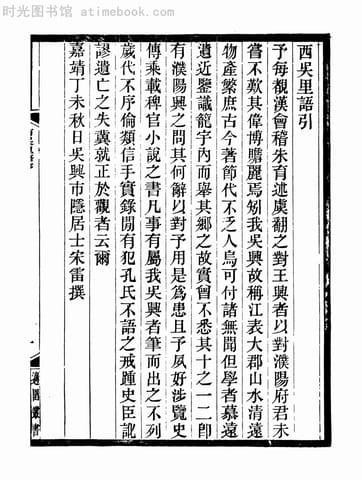 时光图书馆 atimebook.com
西吳里語引
予每覩漢會稽朱育述虞翻之對王興者以對濮陽府君未
嘗不歎其偉博贍麗焉矧我吳興故稱江表大郡山水清遠
物產繁庶古今著節代不乏人烏可付諸無聞但學者慕遠
遺近鑒議寵宇內而舉其鄉之故實曾不悉其十之一二卽
有濮陽興之問其何辭以對予用是爲患且予夙好涉覽史
傳乘載稗官小說之書凡事有屬我吳興者筆而出之不列
歲代不序倫類信手實錄閒有犯孔氏不語之戒踵史臣訛
謬遺亡之失冀就正於觀者云爾
嘉靖丁未秋日吳興市隱居士宋雷撰
一
適園叢書